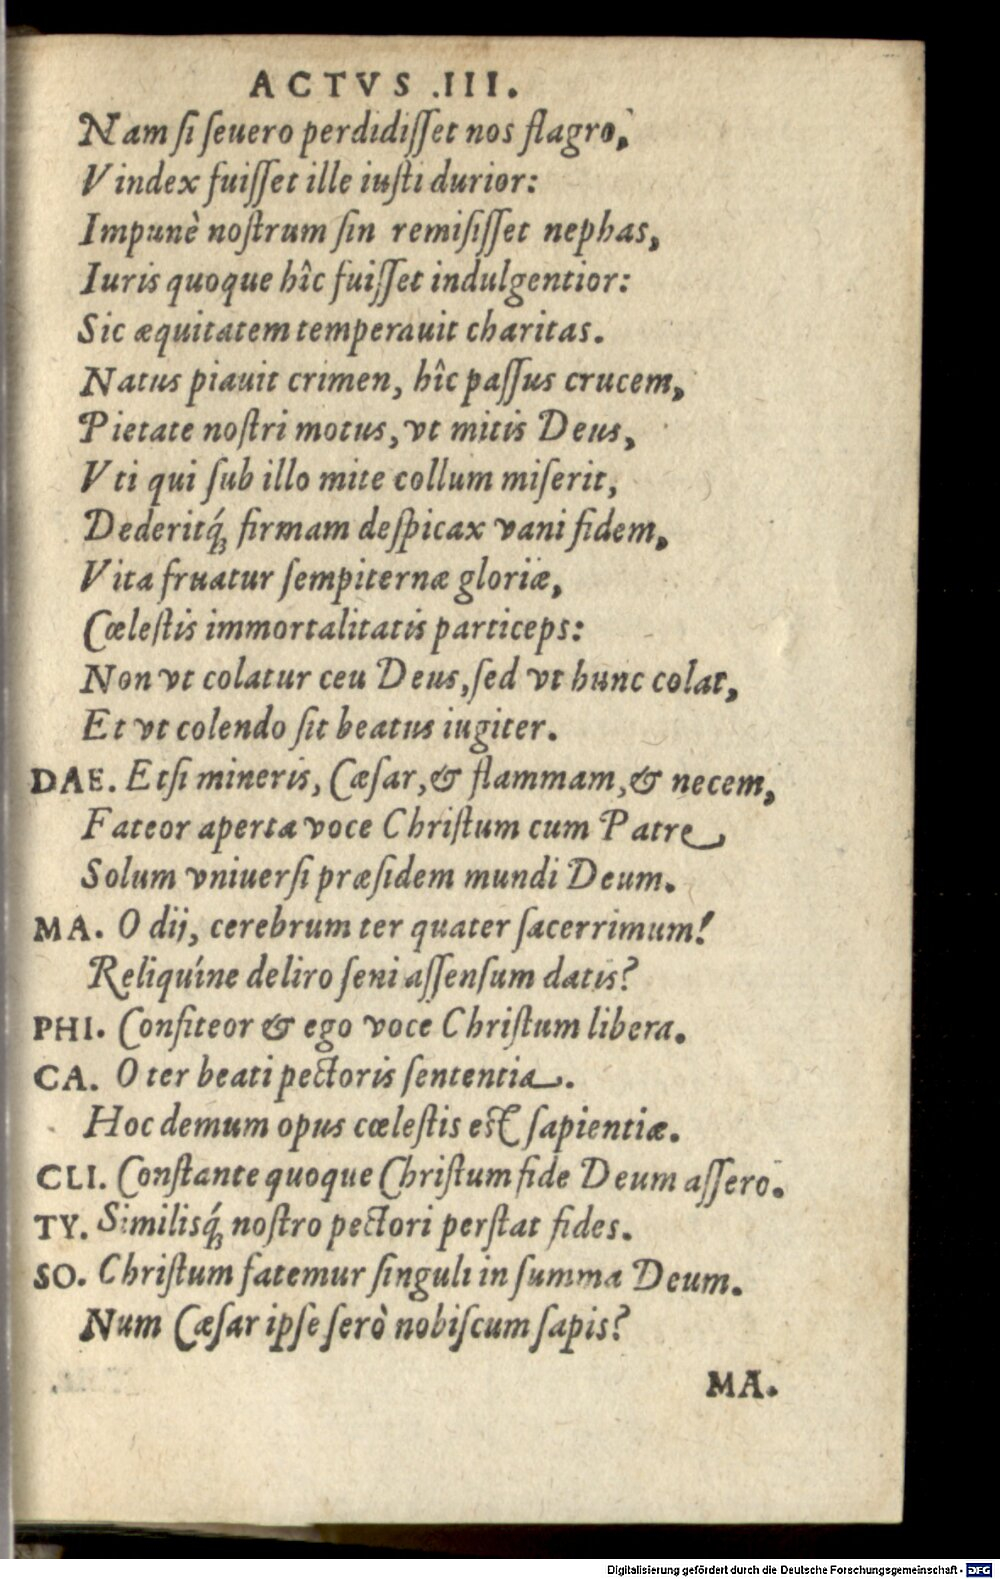 ACTVS .III.
Nam ſi ſeuero perdidiſſet nos flagro,
Vindex fuiſſet ille iuſti durior:
Impunè noſtrum ſin remiſiſſet nephas,
Iuris quoque hîc fuiſſet indulgentior:
Sic æquitatem temperauit charitas.
Natus piauit crimen, hîc paſſus crucem,
Pietate noſtri motus, vt mitis Deus,
Vti qui ſub illo mite collum miſerit,
Dederitq́ꝫ firmam deſpicax vani fidem,
Vita fruatur ſempiternæ gloriæ,
Cœleſtis immortalitatis particeps:
Non vt colatur ceu Deus, ſed vt hunc colat,
Et vt colendo ſit beatus iugiter.
DAE. Etſi mineris, Cæſar, & flammam, & necem,
Fateor aperta voce Chriſtum cum Patre
Solum vniuerſi præſidem mundi Deum.
MA. O dij, cerebrum ter quater ſacerrimum!
Reliquíne deliro ſeni aſſenſum datis?
PHI. Confiteor & ego voce Chriſtum libera.
CA. O ter beati pectoris ſententia.
Hoc demum opus cœleſtis eſt ſapientiæ.
CLI. Conſtante quoque Chriſtum fide Deum aſſero.
TY. Similisq́ꝫ noſtro pectori perſtat fides.
SO. Chriſtum fatemur ſinguli in ſumma Deum.
Num Cæſar ipſe ſerò nobiſcum ſapis?
MA.
Digitalisierung gefördert durch die Deutsche Forschungsgemeinschaft - DFG